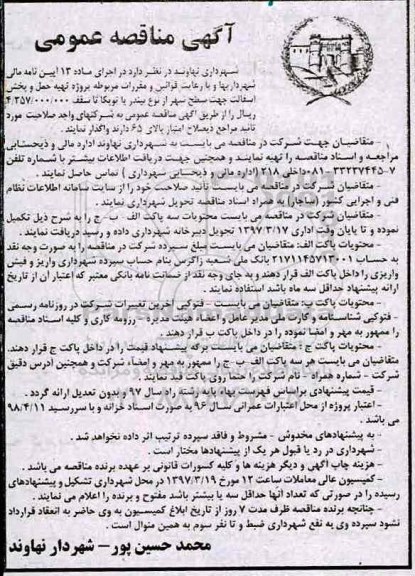 آگهی مناقصه عمومی
شهرداری نهاوند در نظر دارد در اجرای ماده ۱۳ آیین نامه مالی
شهرداریها و با رعایت قوانین و مقررات مربوطه پروژه تهیه حمل و پخش
آسفالت جهت سطح شهر از نوع بیندر یا توپکا تا سقف ۴/۳۵۷/۰۰۰/۰۰۰
ریال را از طریق آگهی مناقصه عمومی به شرکتهای واجد صلاحیت مورد
تائید مراجع ذیصلاح امتیاز بالای ۶۵ دارند واگذار نمایند.
- متقاضیان جهت شرکت در مناقصه می بایست به شهرداری نهاوند اداره مالی و ذیحسابی
مراجعه و اسناد مناقصه را تهیه نمایند و همچنین جهت دریافت اطلاعات بیشتر با شماره تلفن
۷-۳۳۲۳۷۴۴۵-۰۸۱ داخلی ۲۱۸ (اداره مالی و ذیحسابی شهرداری) تماس حاصل نمایند.
- متقاضیان شرکت در مناقصه می بایست تائید صلاحیت خود را از سایت سامانه اطلاعات نظام
فنی و اجرایی کشور (ساجار) به همراه اسناد مناقصه تحویل شهرداری نمایند.
- متقاضیان شرکت در مناقصه می بایست محتویات سه پاکت الف - ب - ج را به شرح ذیل تکمیل
نموده و تا پایان وقت اداری ۱۳۹۷/۳/۱۷ تحویل دبیرخانه شهرداری داده و رسید دریافت نمایند.
- محتویات پاکت الف: متقاضیان می بایست مبلغ سپرده شرکت در مناقصه را به صورت وجه نقد
به حساب ۲۱۷۱۱۴۵۷۱۳۰۰۱ بانک ملی شعبه زاگرس بنام حساب سپرده شهرداری واریز و فیش
واریزی را داخل پاکت الف قرار دهند و به جای وجه نقد از ضمانت نامه بانکی معتبر که اعتبار آن از تاریخ
ارائه پیشنهاد حداقل سه ماه باشد استفاده نمایند.
- محتویات پاکت ب: متقاضیان می بایست - فتوکپی آخرین تغییرات شرکت در روزنامه رسمی
- فتوکپی شناسنامه و کارت ملی مدیر عامل و اعضاء هیئت مدیره - رزومه کاری و کلیه اسناد مناقصه
را ممهور به مهر و امضا نموده را در داخل پاکت ب قرار دهند.
- محتویات پاکت ج: متقاضیان می بایست برگه پیشنهاد قیمت را در داخل پاکت ج قرار دهند.
متقاضیان می بایست هر سه پاکت الف - ب - ج را ممهور به مهر و امضاء شرکت و همچنین آدرس دقیق
شرکت - شماره همراه - نام شرکت را حتما روی پاکت قید نمایند.
- قیمت پیشنهادی براساس فهرست بهاء پایه رشته راه سال ۹۷ و بدون تعدیل ارائه گردد.
- اعتبار پروژه از محل اعتبارات عمرانی سال ۹۶ به صورت اسناد خزانه و با سررسید ۹۸/۴/۱۱
می باشد.
- به پیشنهادهای مخدوش - مشروط و فاقد سپرده ترتیب اثر داده نخواهد شد.
- شهرداری در رد یا قبول هر یک از پیشنهادها مختار است.
- هزینه چاپ آگهی و دیگر هزینه ها و کلیه کسورات قانونی بر عهده برنده مناقصه می باشد.
- کمیسیون عالی معاملات ساعت ۱۲ مورخ ۱۳۹۷/۳/۱۹ در محل شهرداری تشکیل و پیشنهادهای
رسیده را در صورتی که تعداد آنها حداقل سه یا بیشتر باشد مفتوح و برنده را اعلام می نمایند.
- چنانچه برنده مناقصه ظرف مدت ۷ روز از تاریخ ابلاغ کمیسیون به وی حاضر به انعقاد قرارداد
نشود سپرده وی به نفع شهرداری ضبط و تا نفر سوم به همین منوال است.
محمد حسین پور - شهردار نهاوند